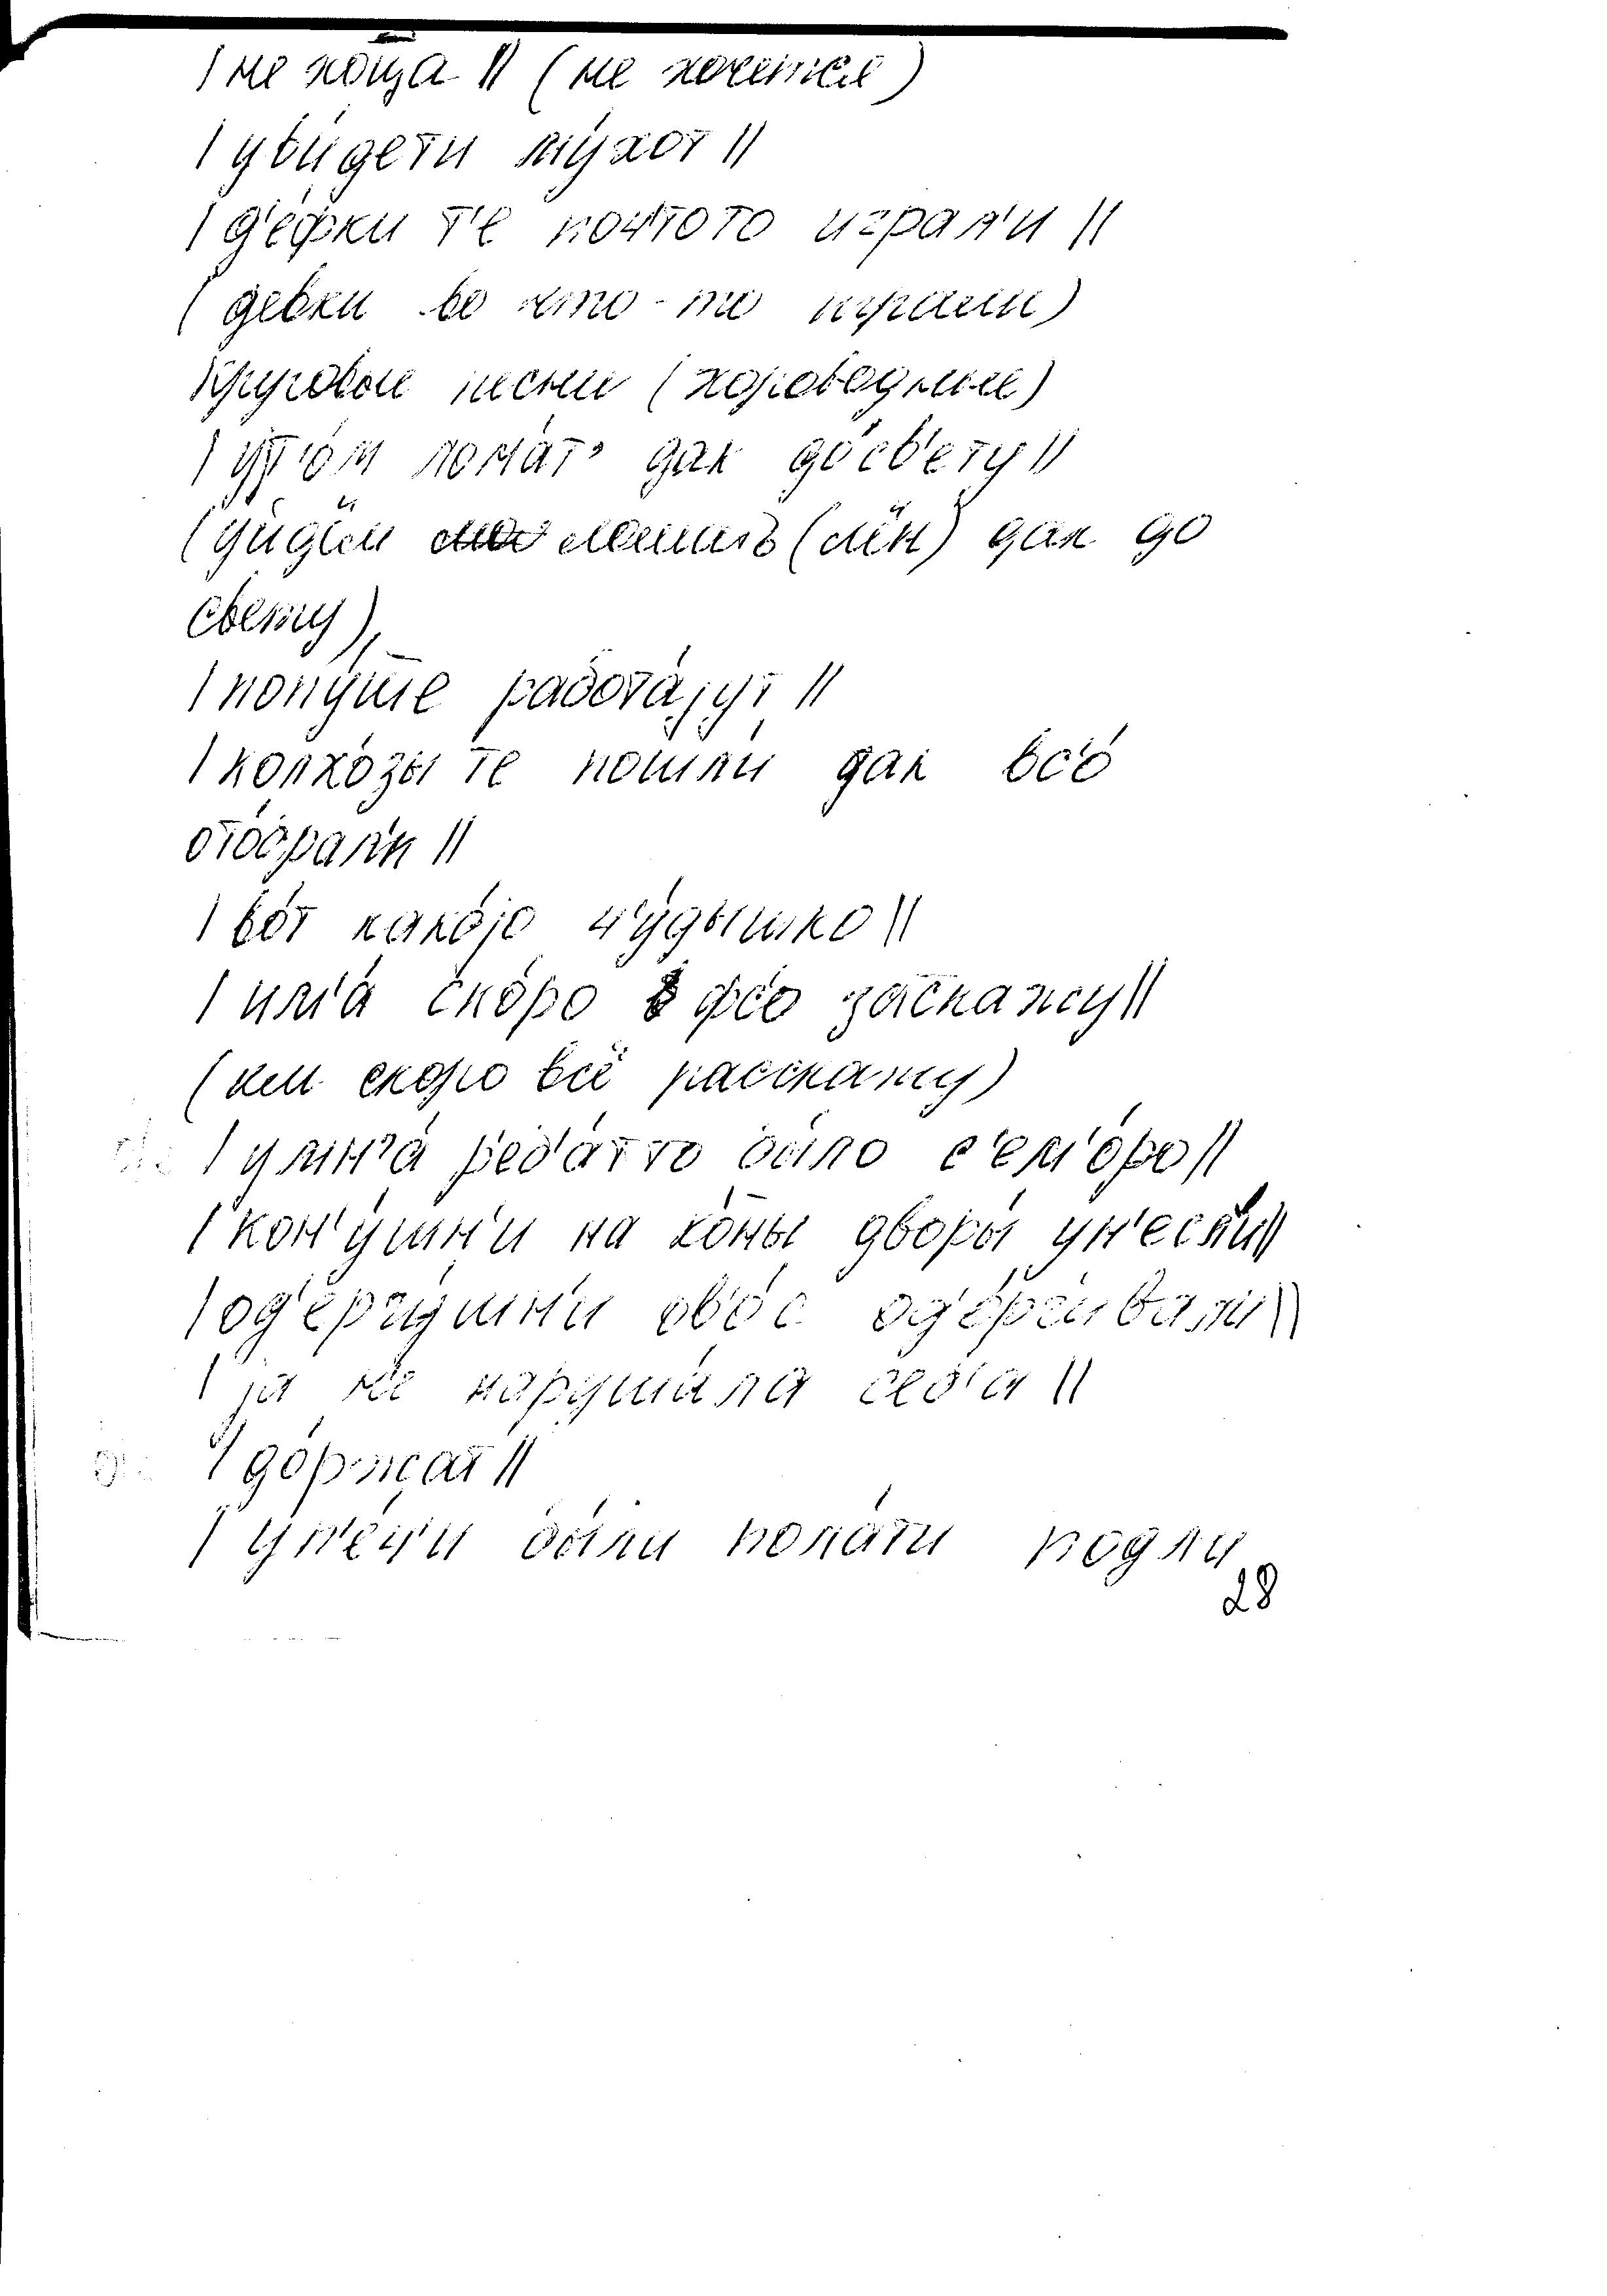 | не хо́ц̄а || (не хочется)
| уви́дети му́хот ||
| д'е́фки т'е почтото играл'и ||
( девки во что-то играли)
Круговые песни (хороводные)
| ут'о́м лома́т' дак до́св'ету ||
(уйдём ломать (лён) дак до
свету)
| попу́ш̄е рабо́та́јут ||
| колхо́зы те пошли́ дак вс'о́
отобрал'и ||
| во́т како́јо ч'у́дышко ||
| им'а́ ско́ро фс'о заскажу ||
(им скоро всё расскажу)
| умн'а́ реб'а́т то было с'ем'о́ро ||
| кон'у́шн'и на ко́н̄ы дворы́ ун'есл'и ||
| од'ергу́шн'и ов'о́с од'о́рг'ивал'и ||
| ја не наруша́ла себ'а ||
| до́ржат ||
| уп'е́ч'и были пола́ти подли
28